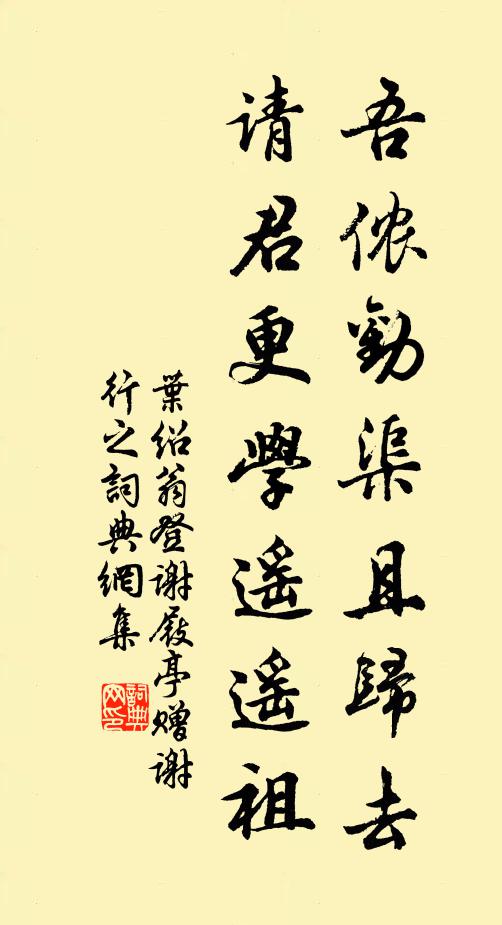 吾侬勸渠且歸去
请君更學遥遥祖
葉绍翁登谢屐亭赠谢
行之詞典網集
詞典网印